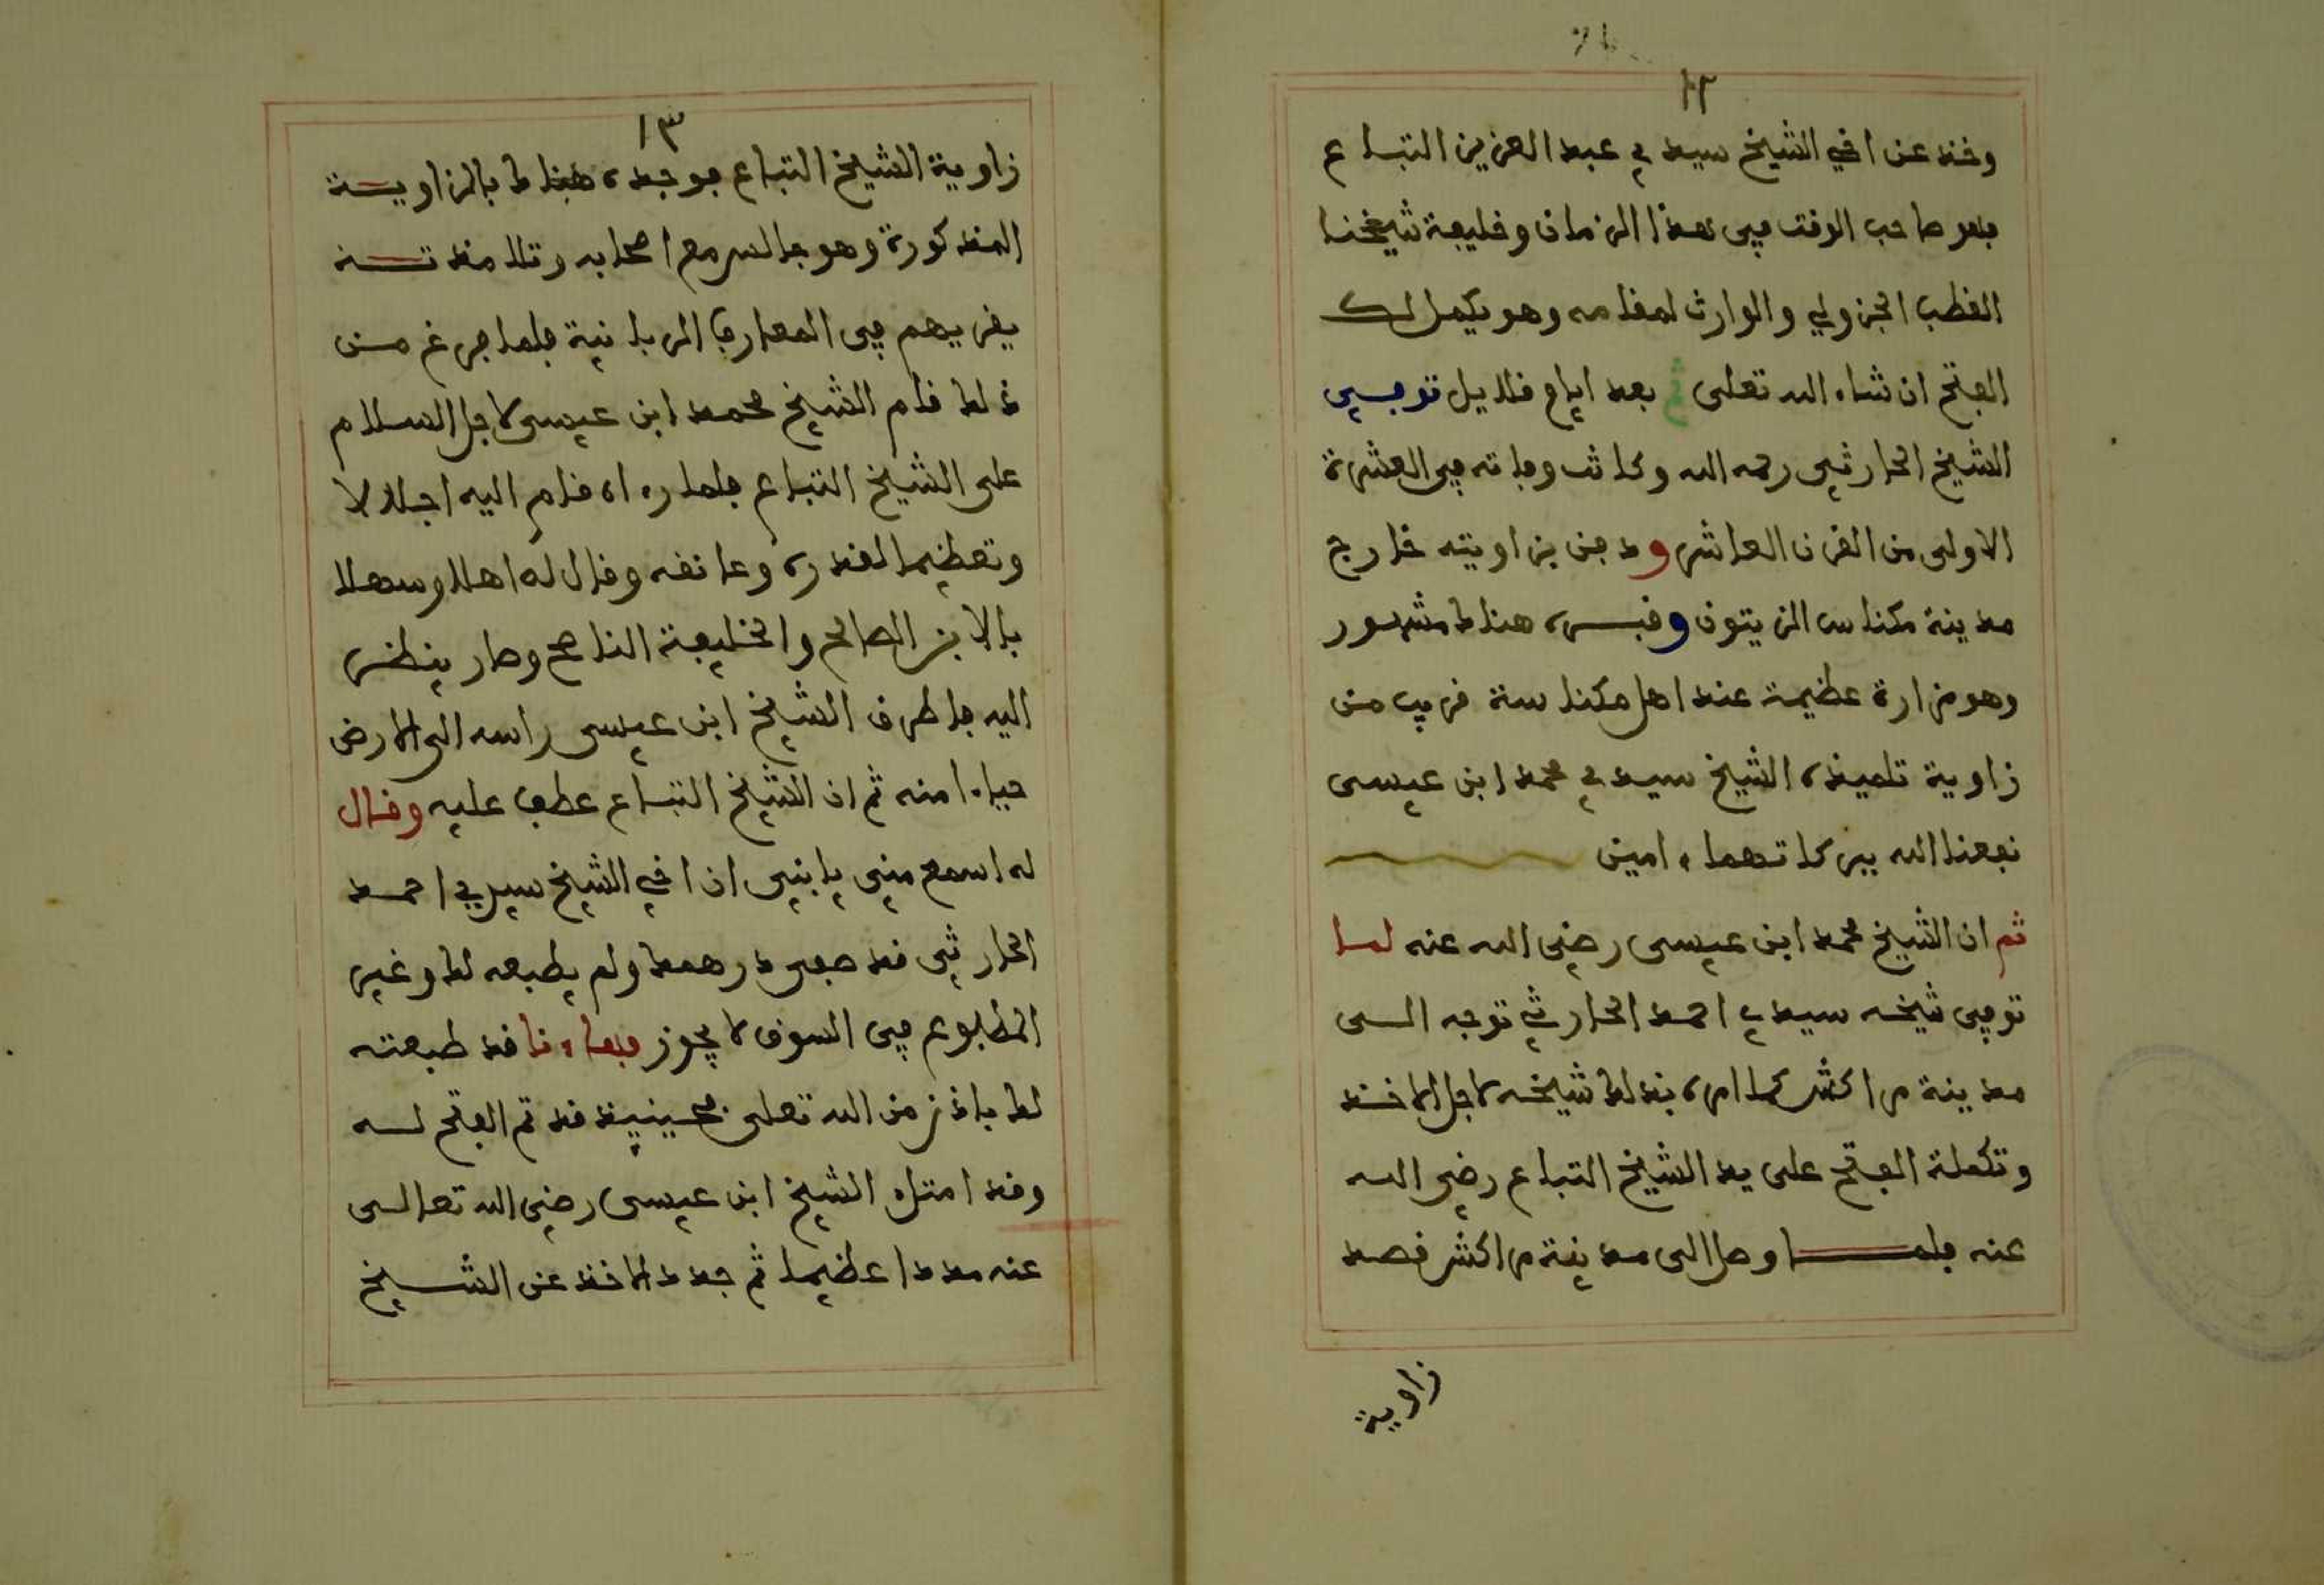 ١٢
وخذ عن اخي الشيخ سيدي عبد العزيز التباع
فهو صاحب الوقت في هذا الزمان وخليفة شيخنا
القطب الجزولي والوارث لمقامه وهو يكمل لك
الفتح ان شاء الله تعلى ثم بعد ايام قلايل توفي
الشيخ الحارثي رحمه الله وكانت وفاته في العشرة
الاولى من القرن العاشر ودفن بزاويته خارج
مدينة مكناس الزيتون وقبره هناك مشهور
وهو مزارة عظيمة عند اهل مكناسة قريب من
زاوية تلميذه الشيخ سيدي محمد ابن عيسى
نفعنا الله ببركاتهما ءامين
ثم ان الشيخ محمد ابن عيسى رضي الله عنه لما
توفي شيخه سيدي احمد الحارثي توجه الى
مدينة مراكش كما امره بذلك شيخه لاجل الاخذ
وتكملة الفتح على يد الشيخ التباع رضي الله
عنه فلما وصل الى مدينة مراكش قصد
زاوية
١٣
زاوية الشيخ التباع فوجده هناك بالزاوية
المذكورة وهو جالس مع اصحابه وتلامذته
يقريهم في المعارف الربانية فلما فرغ من
ذلك قام الشيخ محمد ابن عيسى لاجل السلام
على الشيخ التباع فلما رءاه قام اليه اجلالا
وتعظيما لقدره وعانقه وقال له اهلا وسهلا
بالابن الصالح والخليفة الناصح وصار ينظر
اليه فاطرق الشيخ ابن عيسى راسه الى الارض
حياء امنه ثم ان الشيخ التباع عطف عليه وقال
له اسمع مني يا بني ان اخي الشيخ سيدي احمد
الحارثي قد صفى درهمك ولم يطبعه لك وغير
المطبوع في السوق لا يجوز فها ءنا قد طبعته
لك باذن من الله تعلى فحينيذ قد تم الفتح له
وقد امتلاء الشيخ ابن عيسى رضي الله تعالى
عنه مددا عظيما ثم جدد الاخذ عن الشيخ